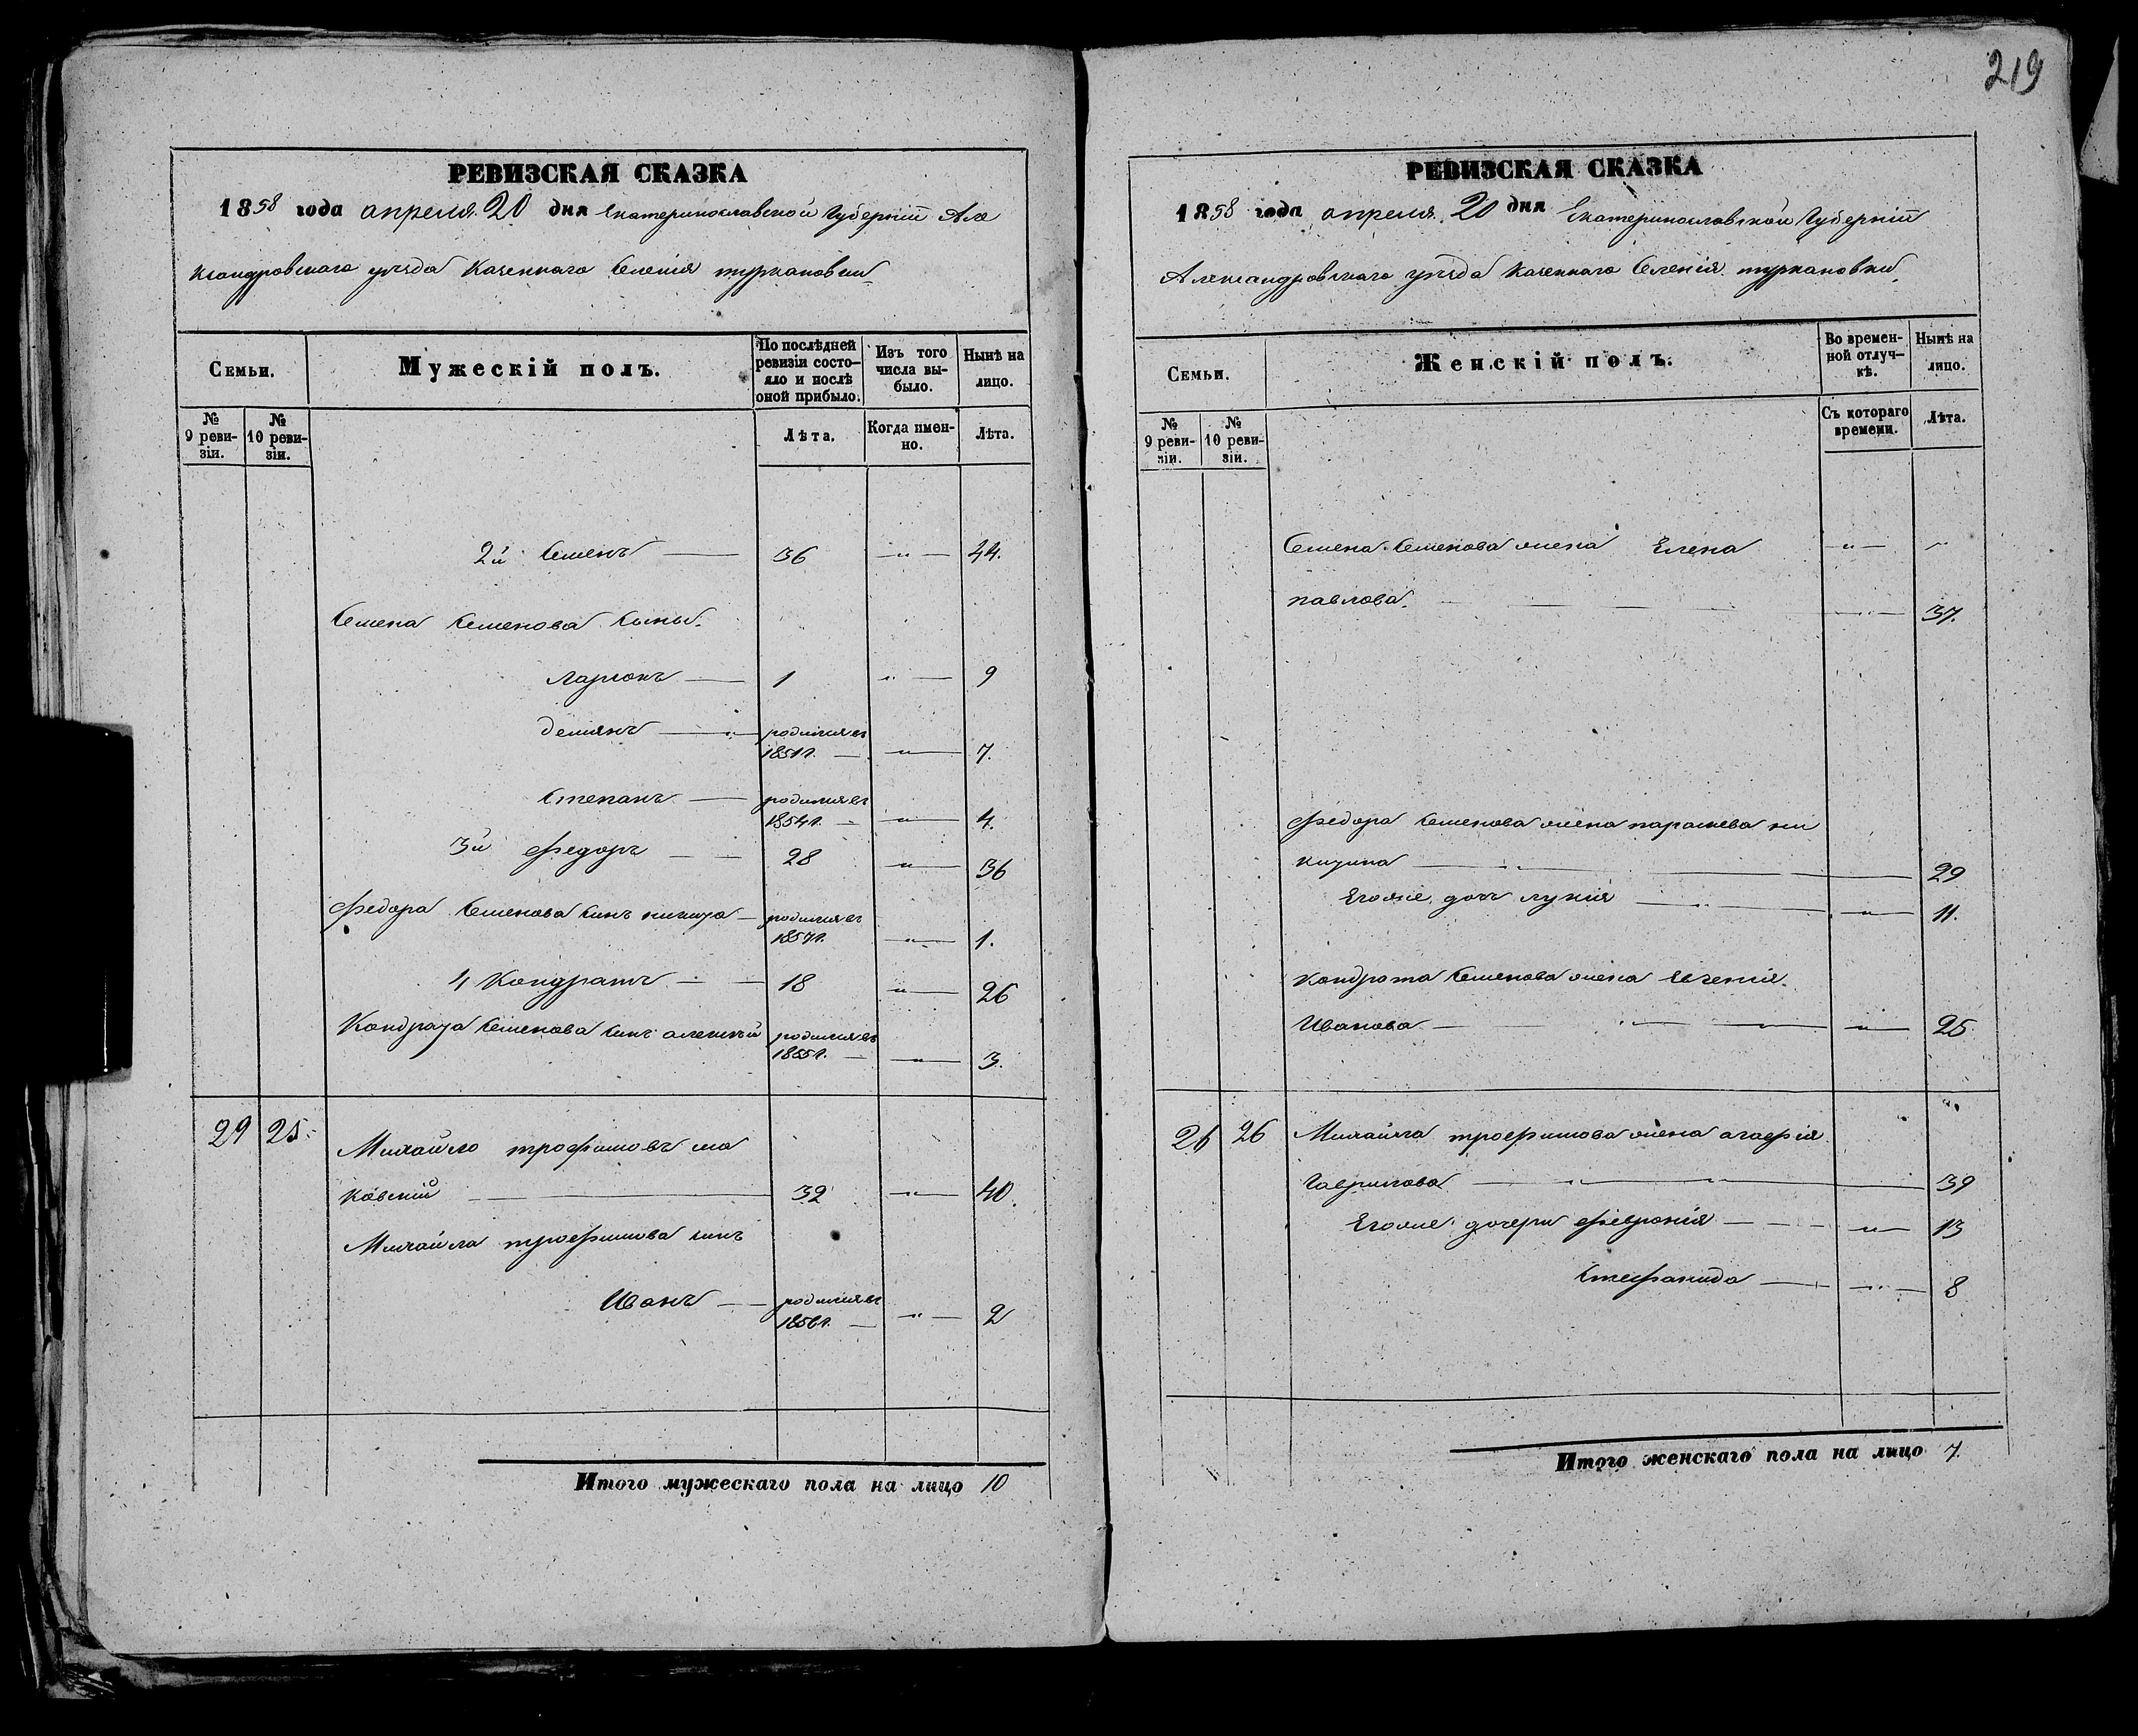 219
РЕВИЗСКАЯ СКАЗКА
1858 года апреля 20 дня Екатеринославской Губернiи Але
ксандровского уѣзда Казеннаго Селенія туркановки
Семьи.
Мужескій полъ.
По послѣдней ревизіи состояло и послѣ оной прибыло.
Изъ того числа выбыло.
Нынѣ на лицо.
№ 9 ревизіи.
№ 10 ревизіи.
Лѣта.
Когда именно.
Лѣта.
2й Семенъ — 36 — " — 44.
Семена Семенова Сыны.
Ларионъ — 1 — " — 9
демянъ — родился въ
1851г. — " — 7.
Степанъ — родился въ
1854г. — " — 4.
3й Федоръ — 28 — " — 36
Федора Семенова Сынъ никита — родился въ
1857г. — " — 1.
4 Кондратъ — 18 — " — 26
Кондрата Семенова Сынъ алексѣй родился въ
1855г. — " — 3.
29 25 Михайло трофимовъ ма
ковский — 32 — " — 40.
Михайла трофимова сынъ
Иванъ — родился въ
1856г. — " — 2
Итого мужескаго пола на лицо 10
РЕВИЗСКАЯ СКАЗКА
1858 года апреля 20 дня Екатеринославской Губернiи
Александровского уѣзда Казеннаго Селенія туркановки
Семьи.
Женскій полъ.
Во временной отлучкѣ.
Нынѣ на лицо.
№ 9 ревизіи.
№ 10 ревизіи.
Съ котораго времени.
Лѣта.
Семена Семенова жена Елена — " —
павлова. — 37.
Федора Семенова жена парасковева ни
китина — 29
Егоже дочь лукия — " — 11.
Кондрата Семенова жена Евгения
Иванова — " — 25
26 26 Михайла трофимова жена агафія
Гаврилова — 39
Егоже дочери Феврония — " — 13
Стефанида — " — 8
Итого женскаго пола на лицо 7.